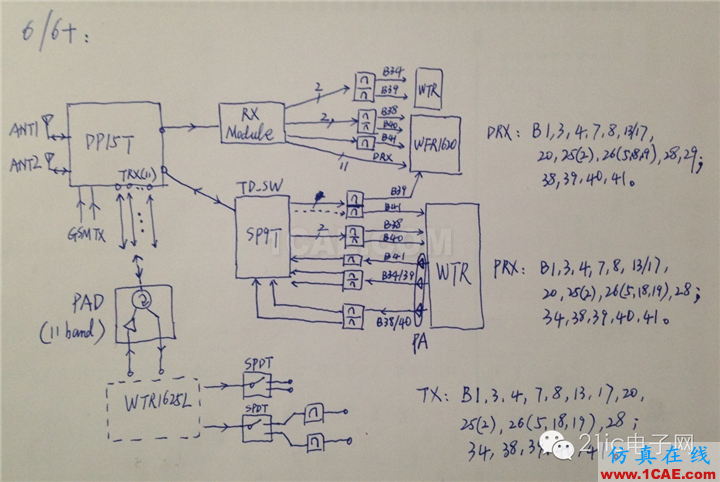 6/6+:
ANT1
ANT2
DP15T
TRX(11)
GSMTX
RX
Module
2
B34
B39
WTR
2
B38
B40
B41
11
DRX
WFR1620
TD_SW
SP9T
B39
B41
2
B38
B40
B41
B34/39
B38/40
PA
WTR
PAD
(11 band)
WTR1625L
SPDT
SPDT
DRX: B1, 3, 4, 7, 8, 13/17,
20, 25(2), 26(5,18,9), 28, 29;
38, 39, 40, 41.
PRX: B1, 3, 4, 7, 8, 13/17,
20, 25(2), 26(5,18,19), 28;
34, 38, 39, 40, 41.
TX: B1, 3, 4, 7, 8, 13, 17, 20,
25(2), 26(5,18,19), 28;
34, 38, 39
1CAE.COM
21ic电子网
仿真在线
www.1CAE.com